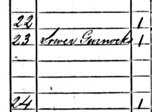 22 1
23 Lower Gurnock 1
24 1